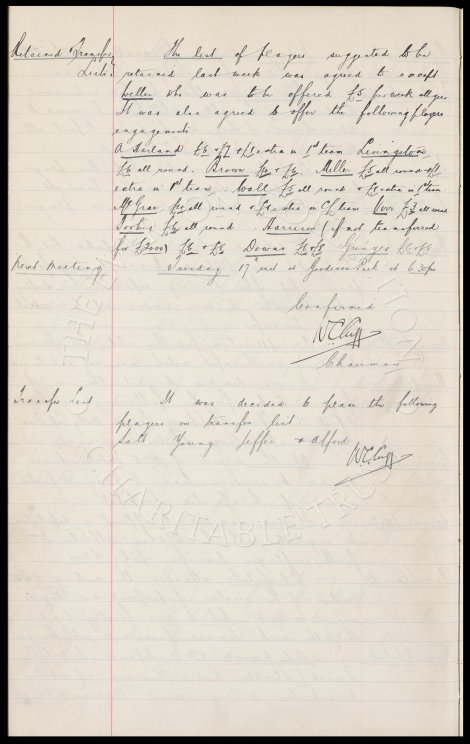 Retained & Transfer
Lists
The list of players suggested to be
retained last week was agreed to except
Weller who was to be offered £5 per week all year
It was also agreed to offer the following players
engagement
A Harland + £1 extra in 1st team Livingstone
£6 all round. Brown Meller £5 all round
extra in 1st team Wall £5 all round + £1 extra in 1st team
McGraw all round + extra in CL team Virr £3 all round
Forbes £6 all round Harrison (if not transferred
for £2000) £6 + £6 Downs Grenyer
Next Meeting
Tuesday 17th inst at Goodison Park at 6.30pm
Confirmed
W.C. Cuff
Chairman
Transfer List
It was decided to place the following
players on transfer list:
Salt Young Jeffer & Alford
W.C. Cuff
THE
CHARITABLE TRUST